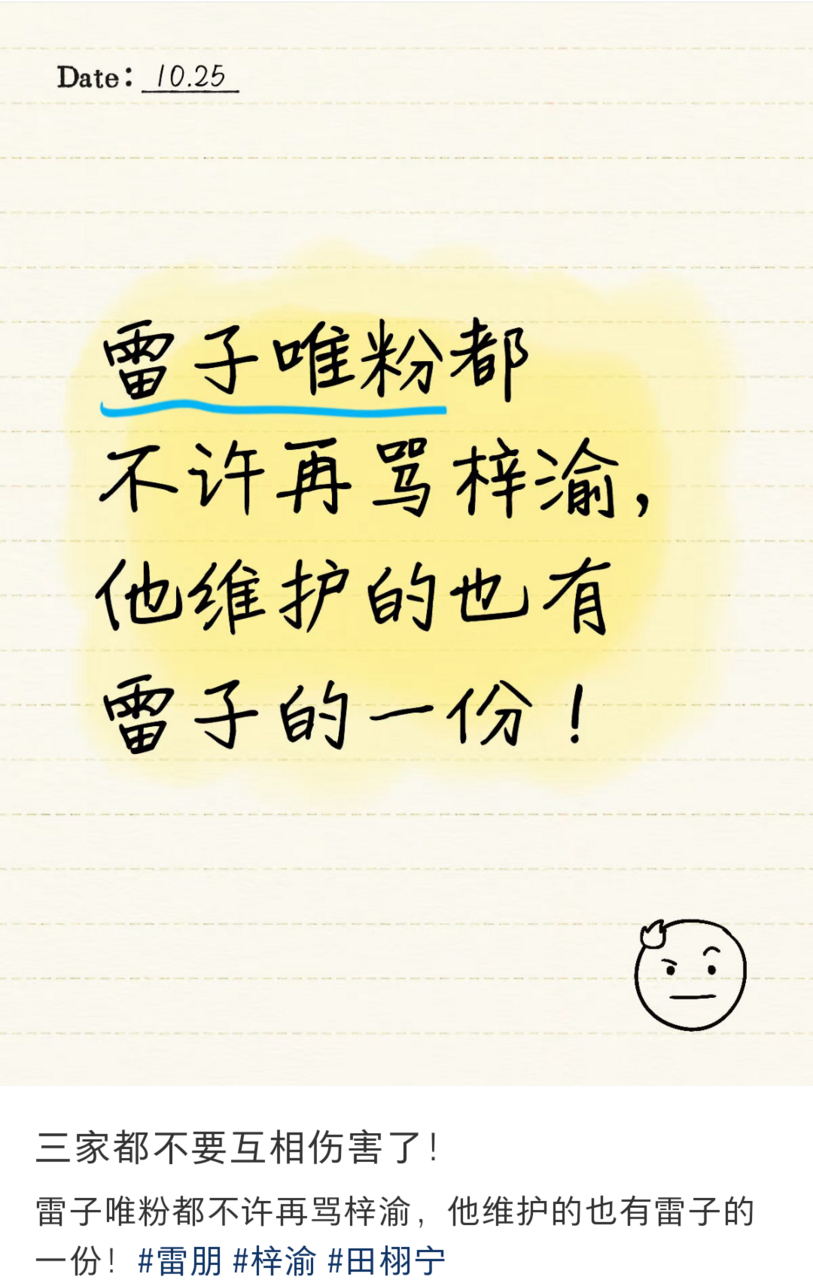 Date: 10.25
雷子唯粉都
不许再骂梓渝,
他维护的也有
雷子的一份!
三家都不要互相伤害了!
雷子唯粉都不许再骂梓渝,他维护的也有雷子的
一份!#雷朋 #梓渝 #田栩宁